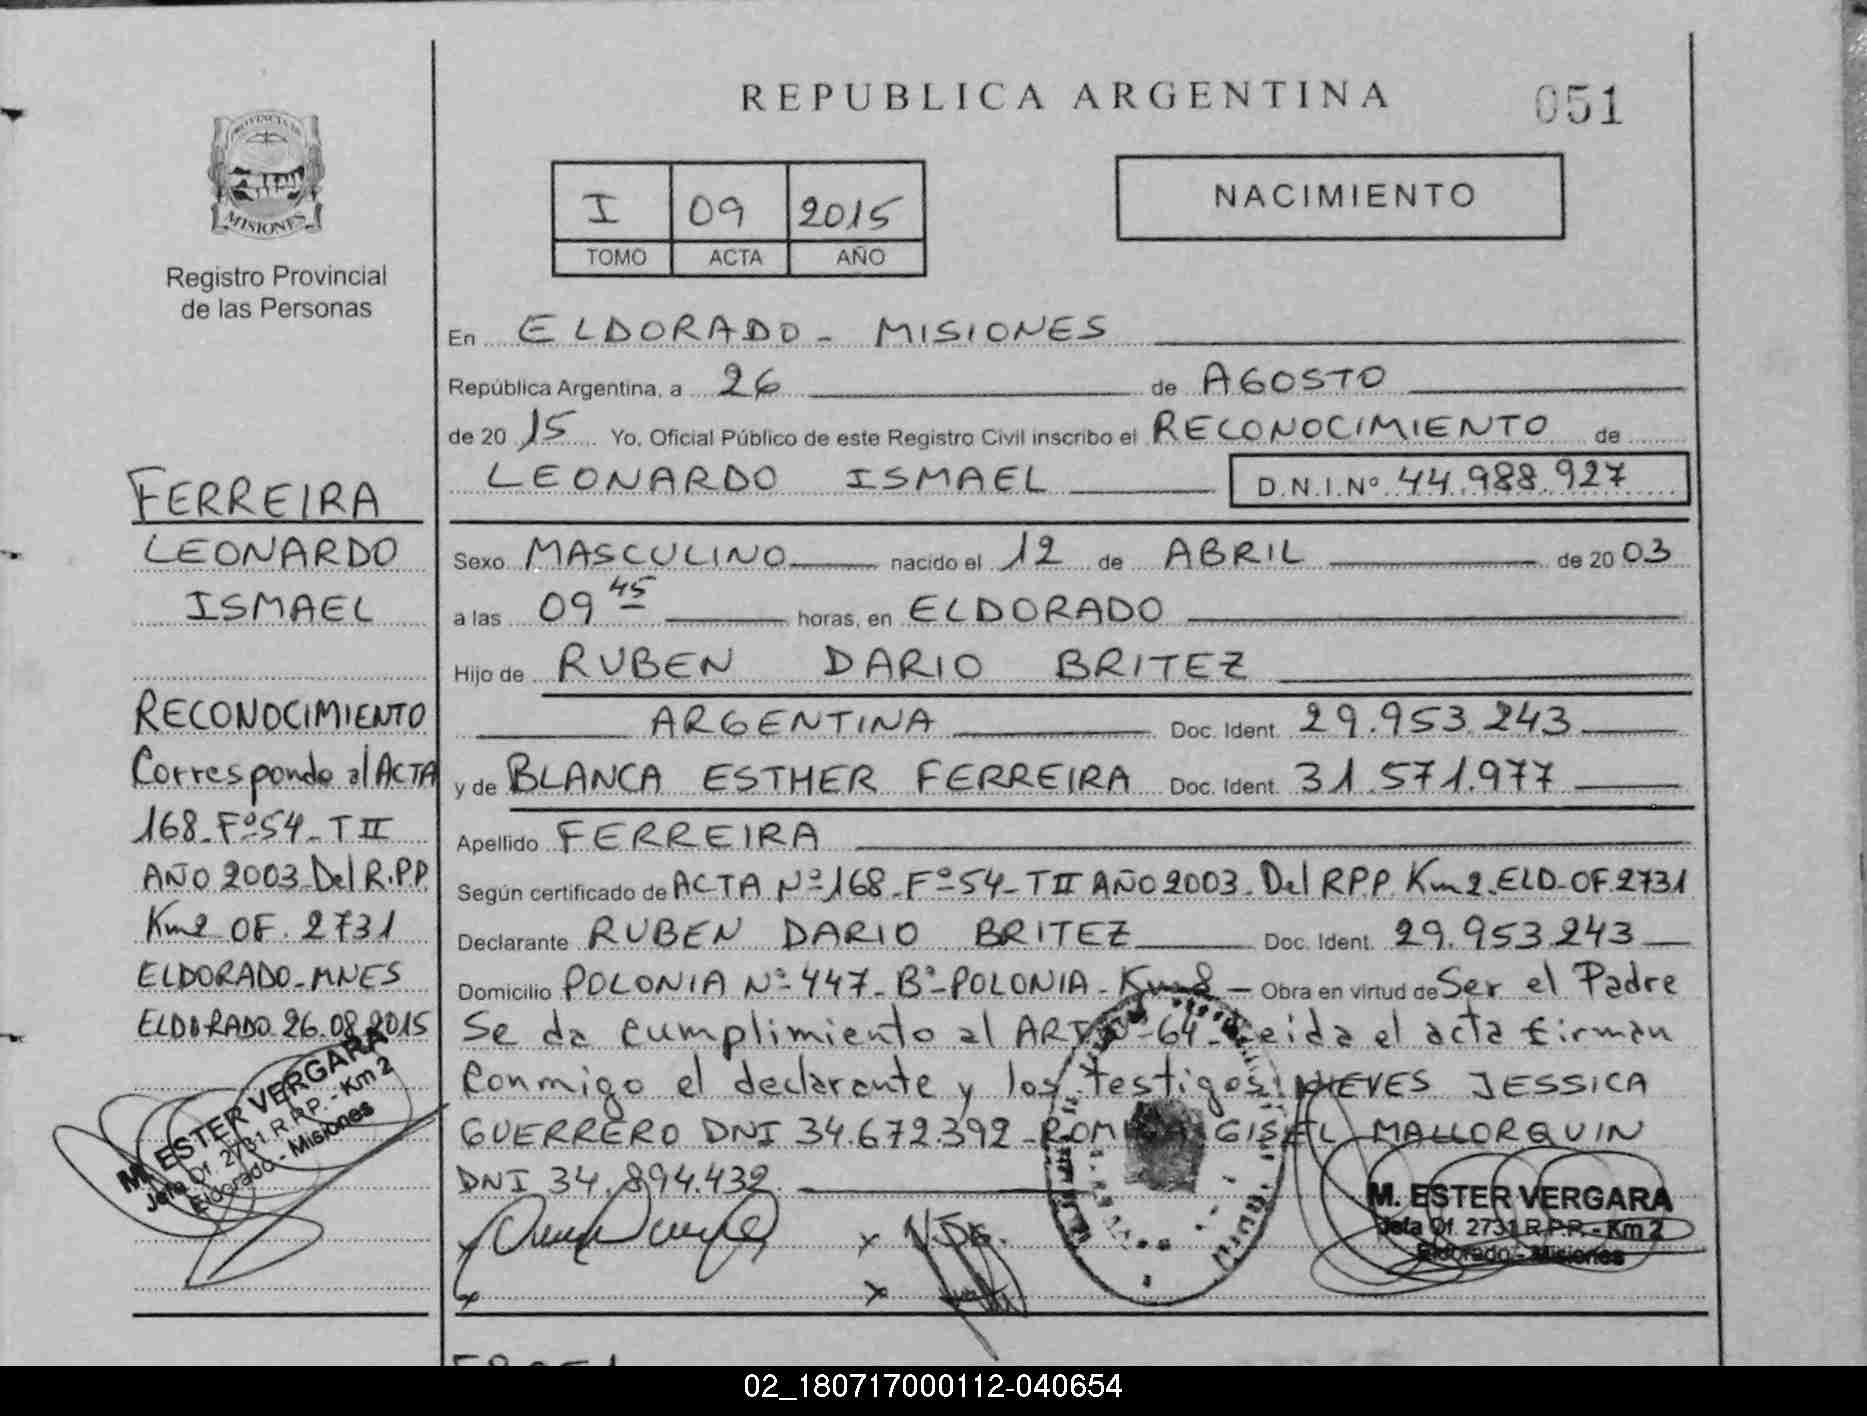 REPUBLICA ARGENTINA
051
PROVINCIA DE
MISIONES
Registro Provincial
de las Personas
I 09 2015
TOMO ACTA AÑO
NACIMIENTO
En ELDORADO - MISIONES
República Argentina, a 26 de AGOSTO
de 20 15 Yo, Oficial Público de este Registro Civil inscribo el RECONOCIMIENTO de
LEONARDO ISMAEL D.N.I.Nº 44.988.927
Sexo MASCULINO nacido el 12 de ABRIL de 20 03
a las 09 45 horas, en ELDORADO
Hijo de RUBEN DARIO BRITEZ
ARGENTINA Doc. Ident. 29.953.243
y de BLANCA ESTHER FERREIRA Doc. Ident. 31.571.977
Apellido FERREIRA
Según certificado de ACTA Nº 168-Fº54-T II AÑO 2003. Del RPP. Km 2. ELD-OF. 2731
Declarante RUBEN DARIO BRITEZ Doc. Ident. 29.953.243
Domicilio POLONIA Nº 447-Bº-POLONIA-Km 8 - Obra en virtud de Ser el Padre
Se da cumplimiento al ART Nº 64-Leida el acta firman
Conmigo el declarante y los testigos: NIEVES JESSICA
GUERRERO DNI 34.672.392-ROMINA GISEL MALLORQUIN
DNI 34.894.432
M. ESTER VERGARA
Jefa Of. 2731 R.P.P. - Km 2
Eldorado - Misiones
FERREIRA
LEONARDO
ISMAEL
RECONOCIMIENTO
Corresponde al ACTA
168-Fº54-T II
AÑO 2003 Del R.P.P.
Km 2 OF. 2731
ELDORADO-MNES
ELDORADO 26.08.2015
M. ESTER VERGARA
Jefa Of. 2731 R.P.P. - Km 2
Eldorado - Misiones
02_180717000112-040654